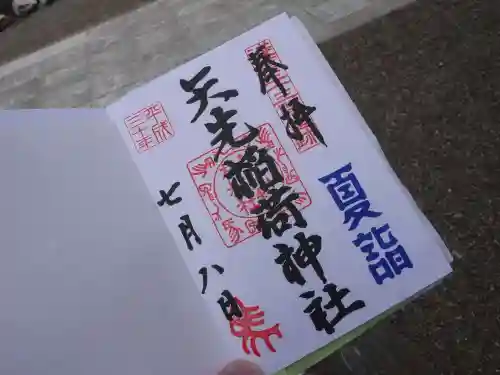 奉拝
夏詣
矢先稲荷神社
平成
三十年
七月八日